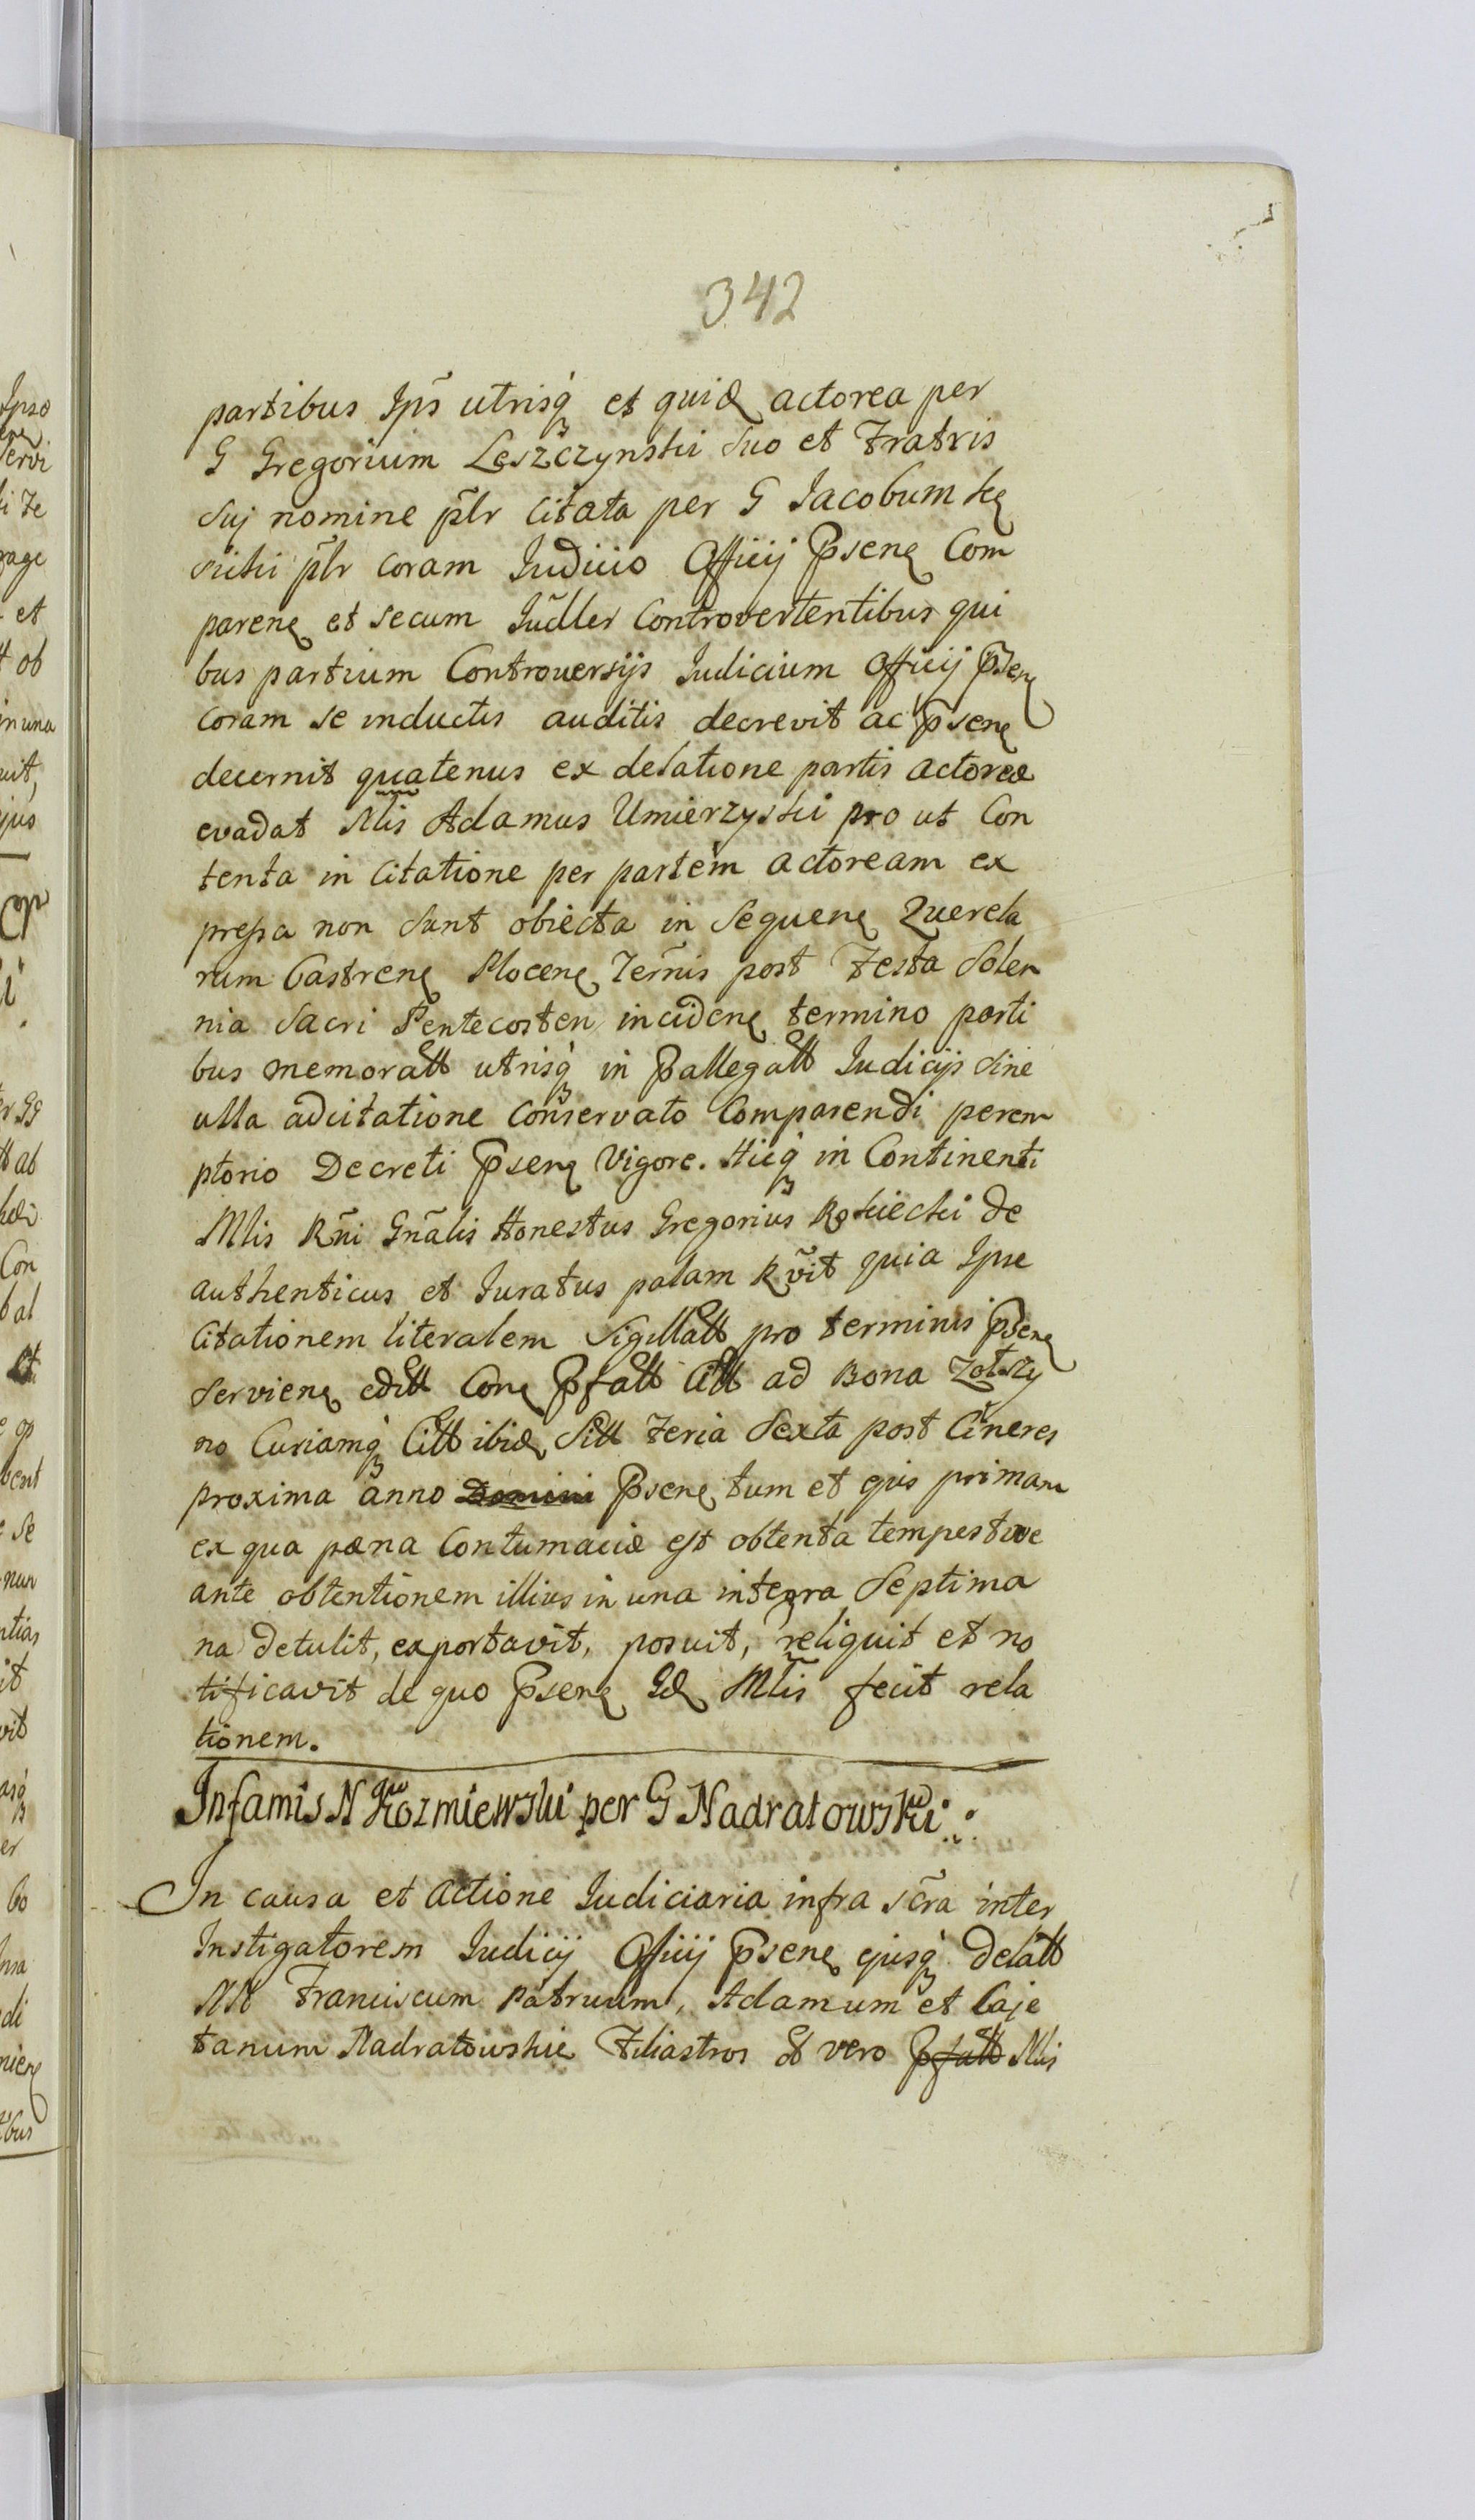 342
partibus Ips̃ utrisq́ et quid actorea per
G Gregorium Leszczynski suo et Fratris
suj nomine pl̃r citata per G Jacobum Kę
sicki pl̃r coram Iudicio Officij Psenę Com
parenę et secum Iudller Controvertentibus qui
bus partium Controversijs Iudicium Officij Psenę
coram se inductis auditis decrevit ac Psenę
decernit quatenus ex delatione partis actoreæ
evadat Mlis Adamus Umierzyski pro ut Con
tenta in Citatione per partem actoream ex
pressa non sunt obiecta in Sequenę Querela
rum Castrenę Plocenę Termis post Festa Solen
nia Sacri Pentecosten incidenę termino parti
bus memoratt utrisq́ in Pallegatt Iudicijs sine
ulla adcitatione conservato Comparendi perem
ptorio Decreti Psenę Vigore. Hicq́ in Continenti
Mlis Rñi Gnãlis Honestus Gregorius de
authenticus et Iuratus palam Rvĩt quia Ipse
Citationem literalem Sigillatt pro terminis Psenę
servienę editt Conę Pfatt Citt ad Bona Zolszy
no Curiamq́ Citt ibid Sitt Feria Sexta post Cineres
proxima anno Domini Psenę tum et ejus primam
ex qua pæna Contumaciæ est obtenta tempestive
ante obtentionem illius in una integra Septima
na detulit, exportavit, posuit, reliquit et no
tificavit de quo Psenę Id Mlis fecit rela
tionem.
Infamis N Kozmiewski per G Nadratowski
In causa et Actione Iudiciaria infra scr̃a inter
Instigatorem Iudicij Officij Psenę ejusq́ Delatt
NN Franciscum Patruum, Adamum et Caje
tanum Nadratowskie Filiastros vero Pfatt Mlis